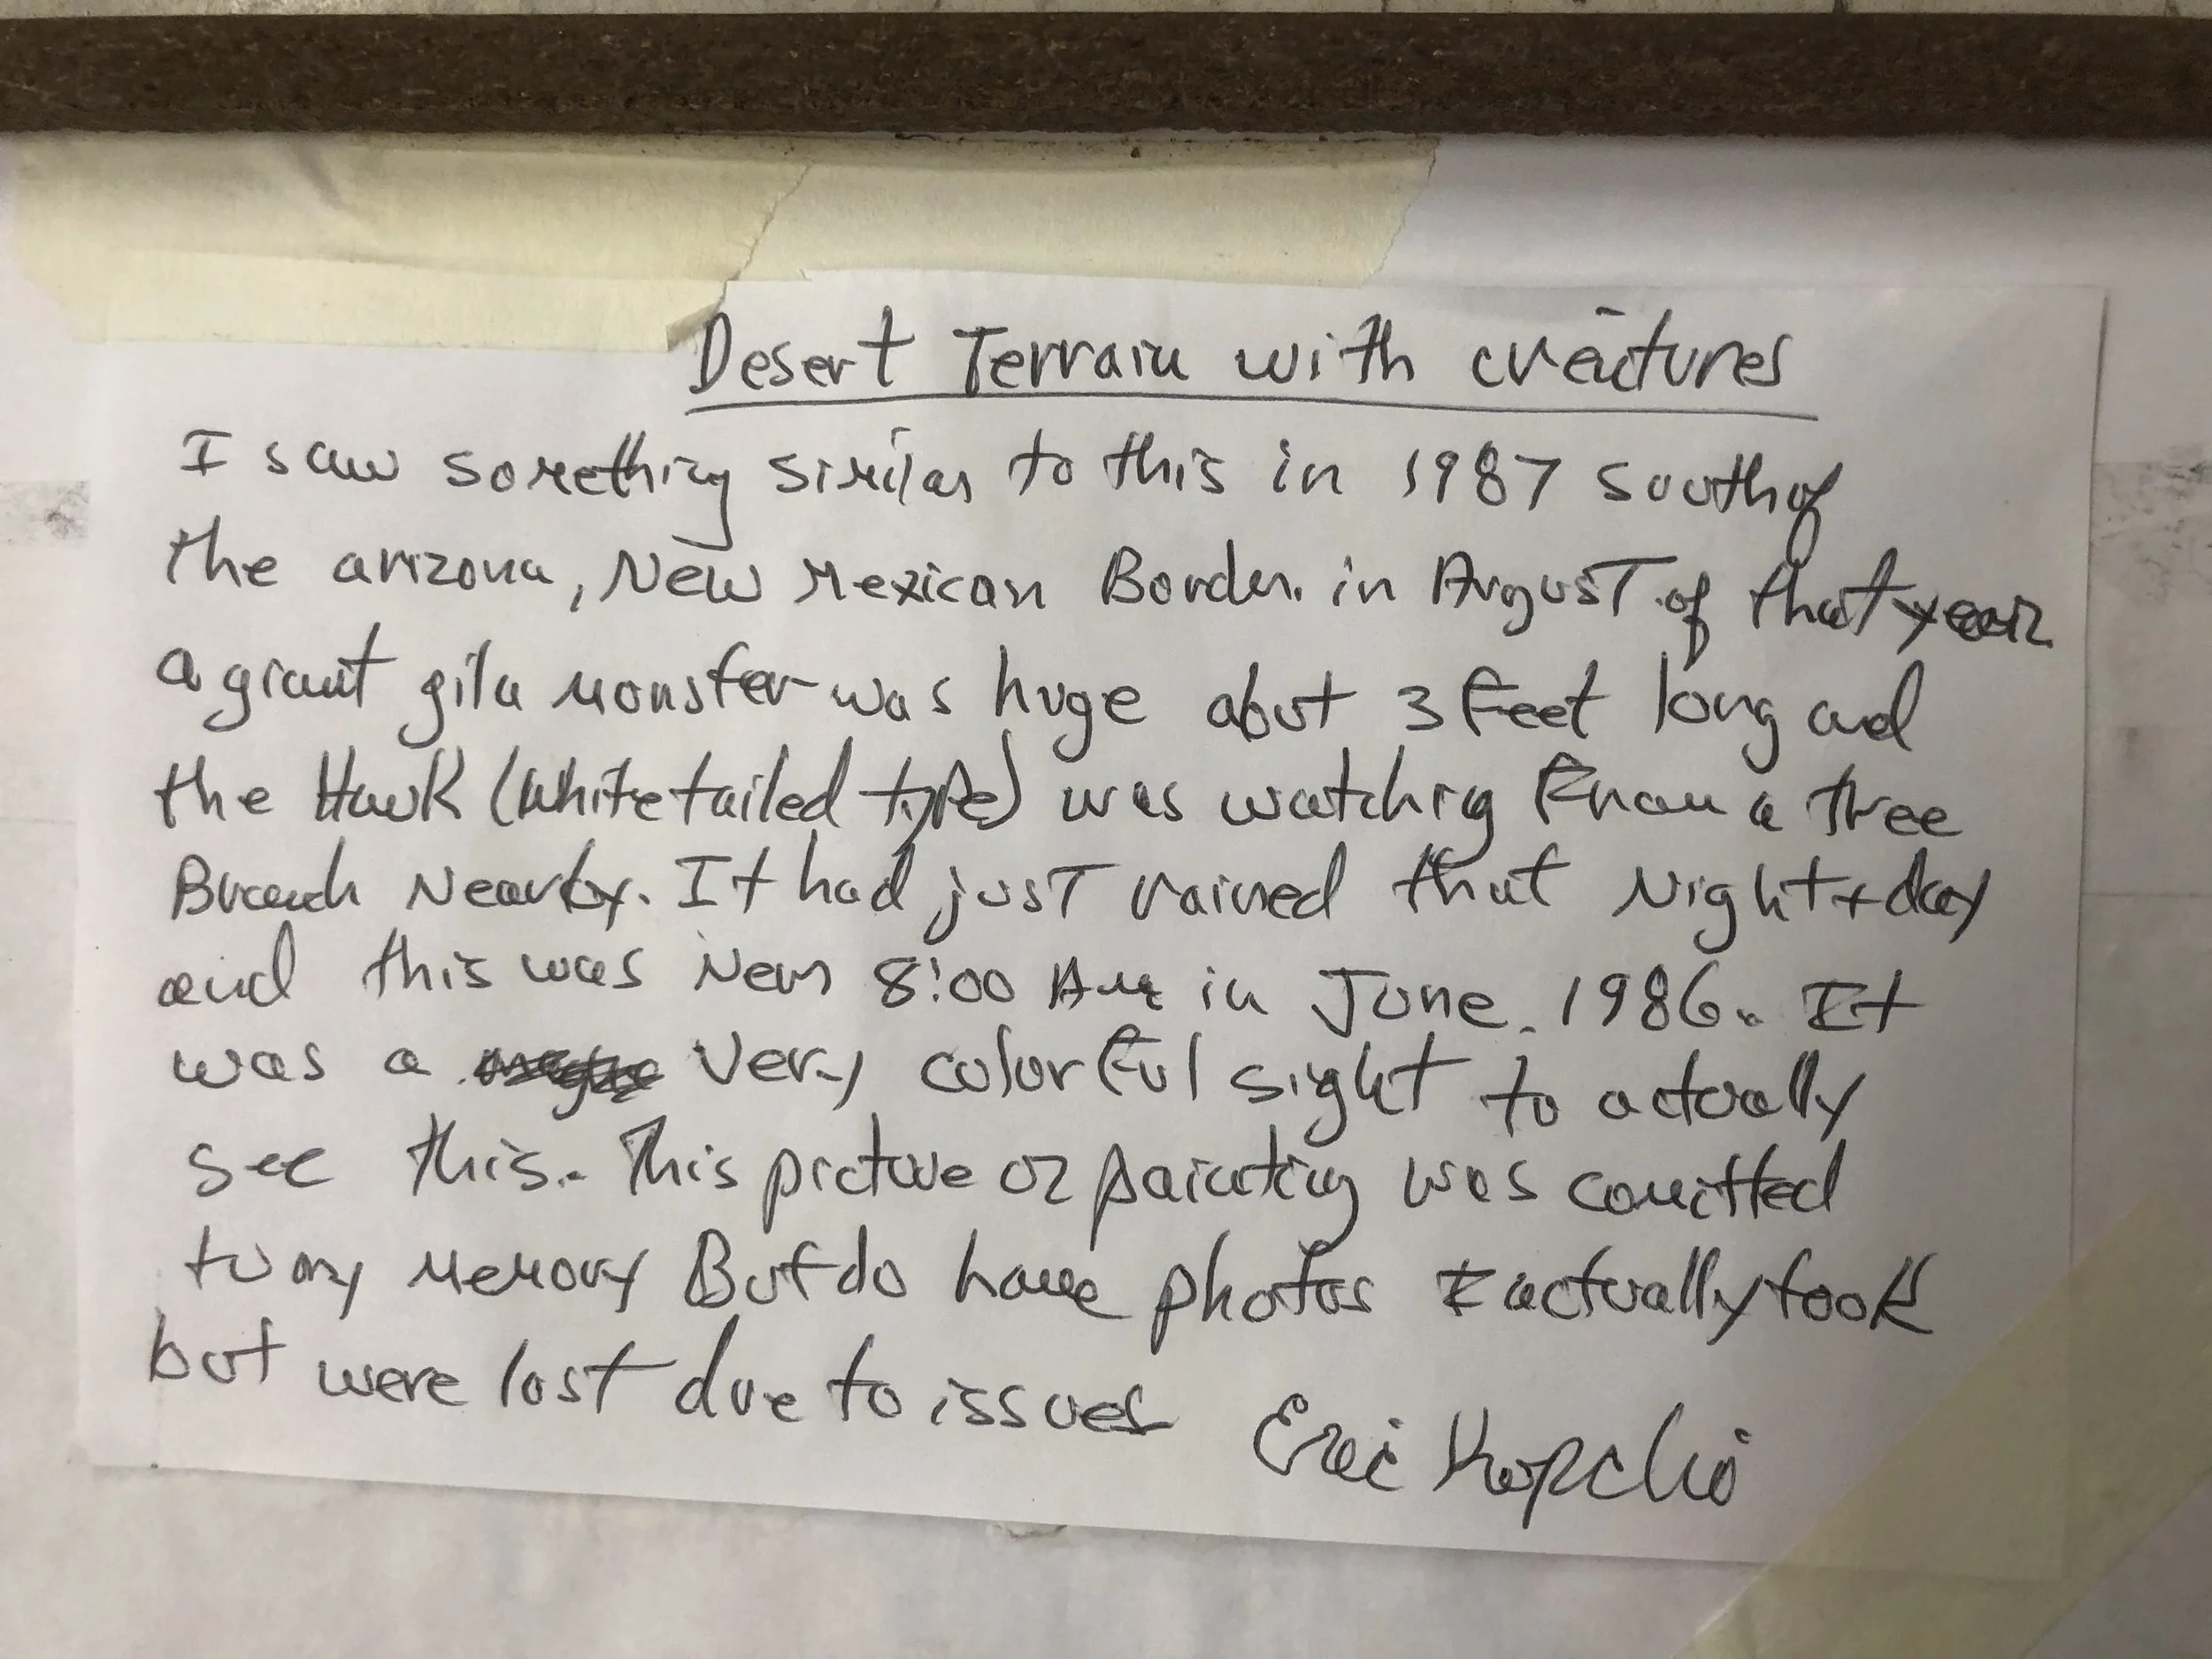 Desert Terrain with creatures
I saw something similar to this in 1987 south of
the arizona, New Mexican Border. in August of that year
a giant gila monster was huge about 3 feet long and
the Hawk (White tailed type) was watching From a Tree
Branch Nearby. It had just rained that Night + day
and this was Near 8:00 AM in June. 1986. It
was a very colorful sight to actually
see this. This picture or painting was comitted
to my memory But do have photos I actually took
but were lost due to issues Eric